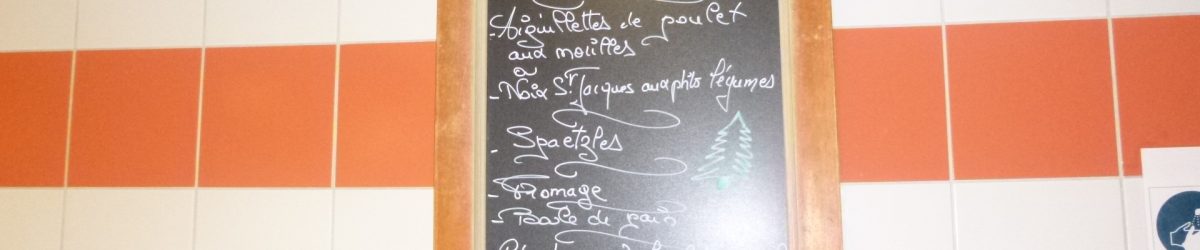 - Aiguillettes de poulet
aux morilles
ou
- Noix St Jacques aux ptits légumes
- Spaetzles
- Fromage
- Boule de pain